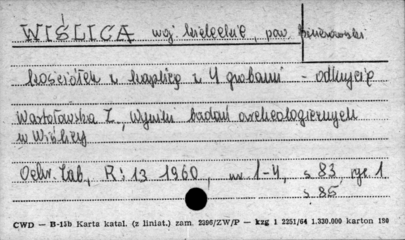 WIŚLICA woj. kieleckie, pow. Pińczowski
kościółek z kaplicą z 4 grobami - odkrycie
Wartołowska Z., Wyniki badań archeologicznych
w Wiślicy
Ochr. Zab., R: 13 1960, nr 1-4, s 83 ryc 1
s. 85
CWD — B-15b Karta katal. (z liniat.) zam. 2396/ZW/P — kzg 1 2251/64 1.320.000 karton 180